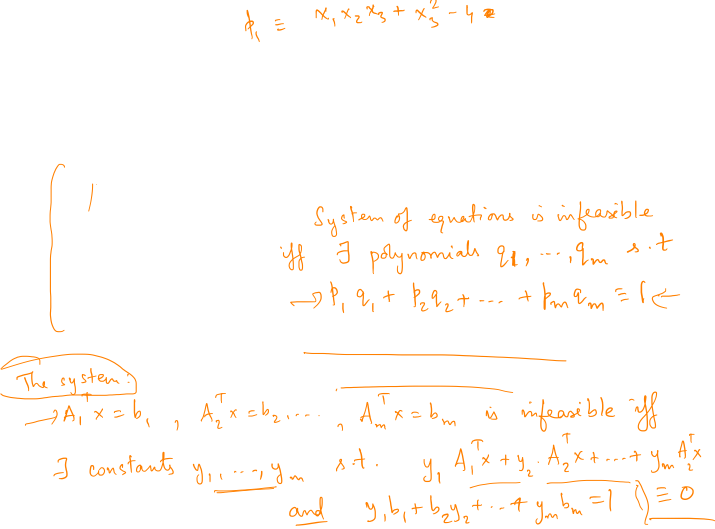 p₁ ≡ x₁x₂x₃ + x₃² - 4
System of equations is infeasible
iff ∃ polynomials q₁, ..., qₘ s.t
→ p₁q₁ + p₂q₂ + .... + pₘqₘ ≡ 1 ←
The system:
→ A₁ᵀx = b₁ , A₂ᵀx = b₂, .... , Aₘᵀx = bₘ is infeasible iff
∃ constants y₁, ..., yₘ s.t. y₁ A₁ᵀx + y₂ . A₂ᵀx + .... + yₘ A₂ᵀx
and y₁b₁ + b₂y₂ + ... + yₘbₘ = 1 ≡ 0